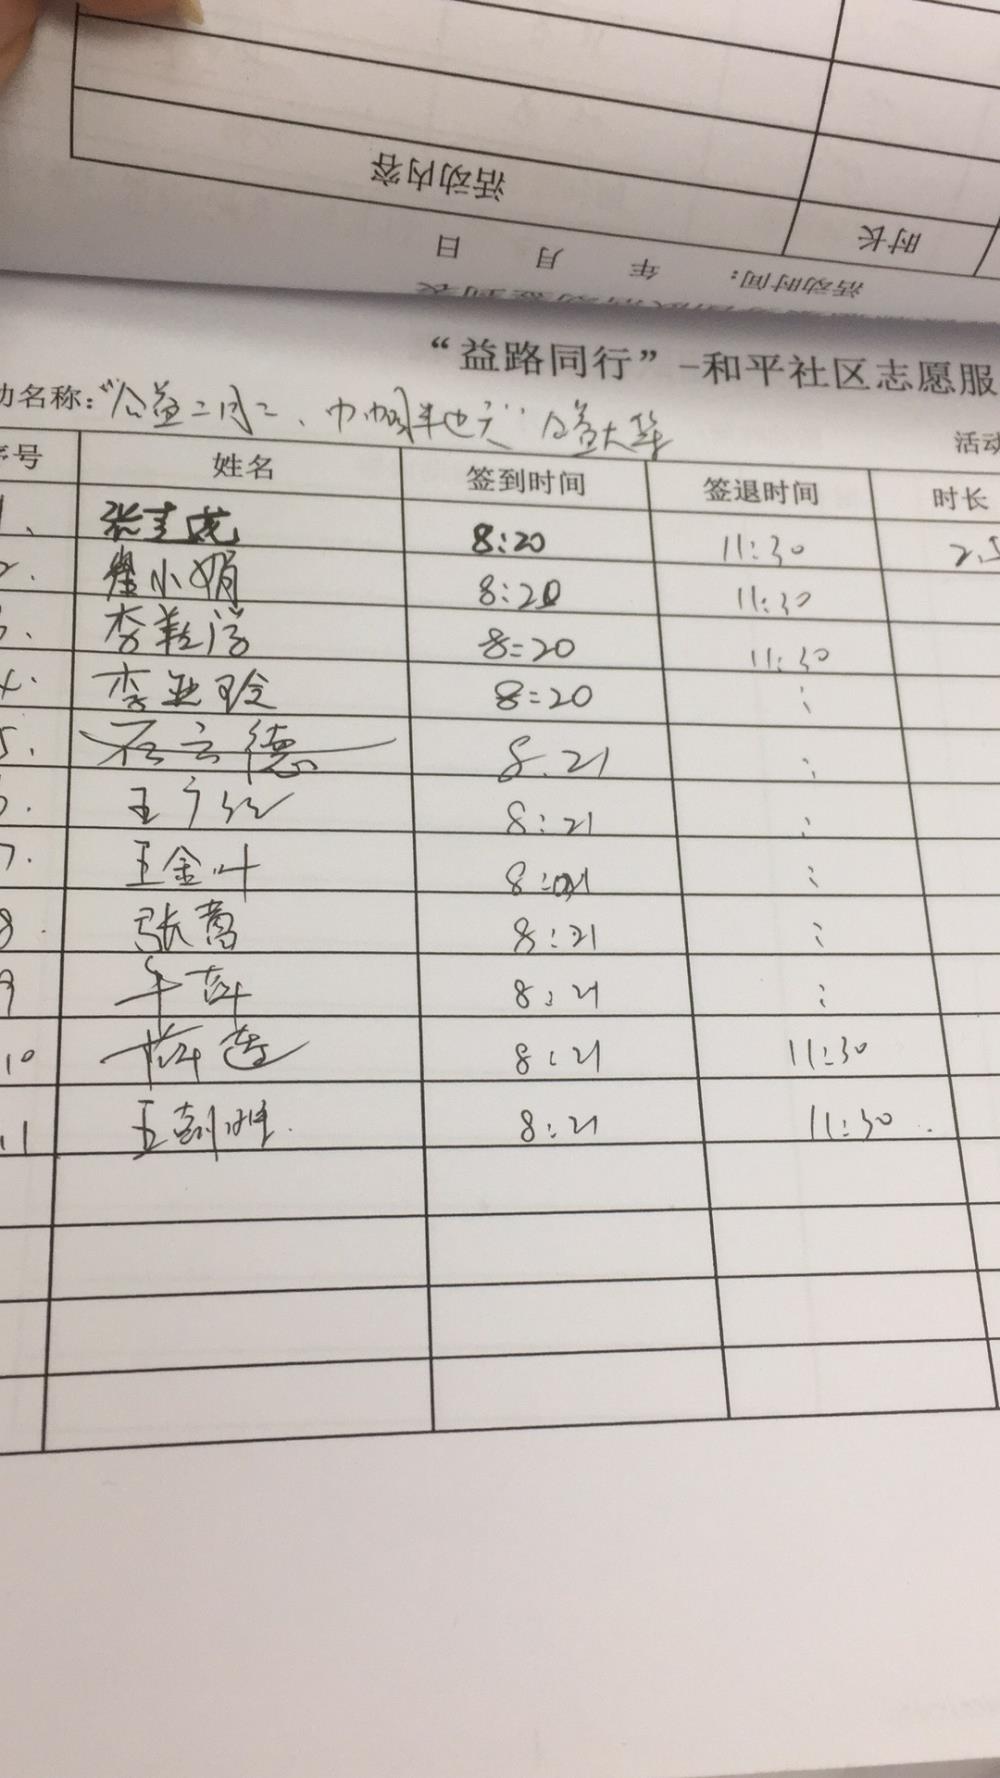 活动内容
时长
活动时间： 年 月 日
“益路同行”-和平社区志愿服
动名称：“公益二月二、巾帼半边天”公益大集
活动
序号 姓名 签到时间 签退时间 时长
1、 8:20 11:30 2.5
2. 小娟 8:20 11:30
3. 李 8:20 11:30
4. 李亚玲 8:20 :
5. 石云德 8:21 :
6. 王广红 8:21 :
7. 王金叶 8:21 :
8. 张 8:21 :
9 8:21 :
10 薛莲 8:21 11:30
11 王 8:21 11:30